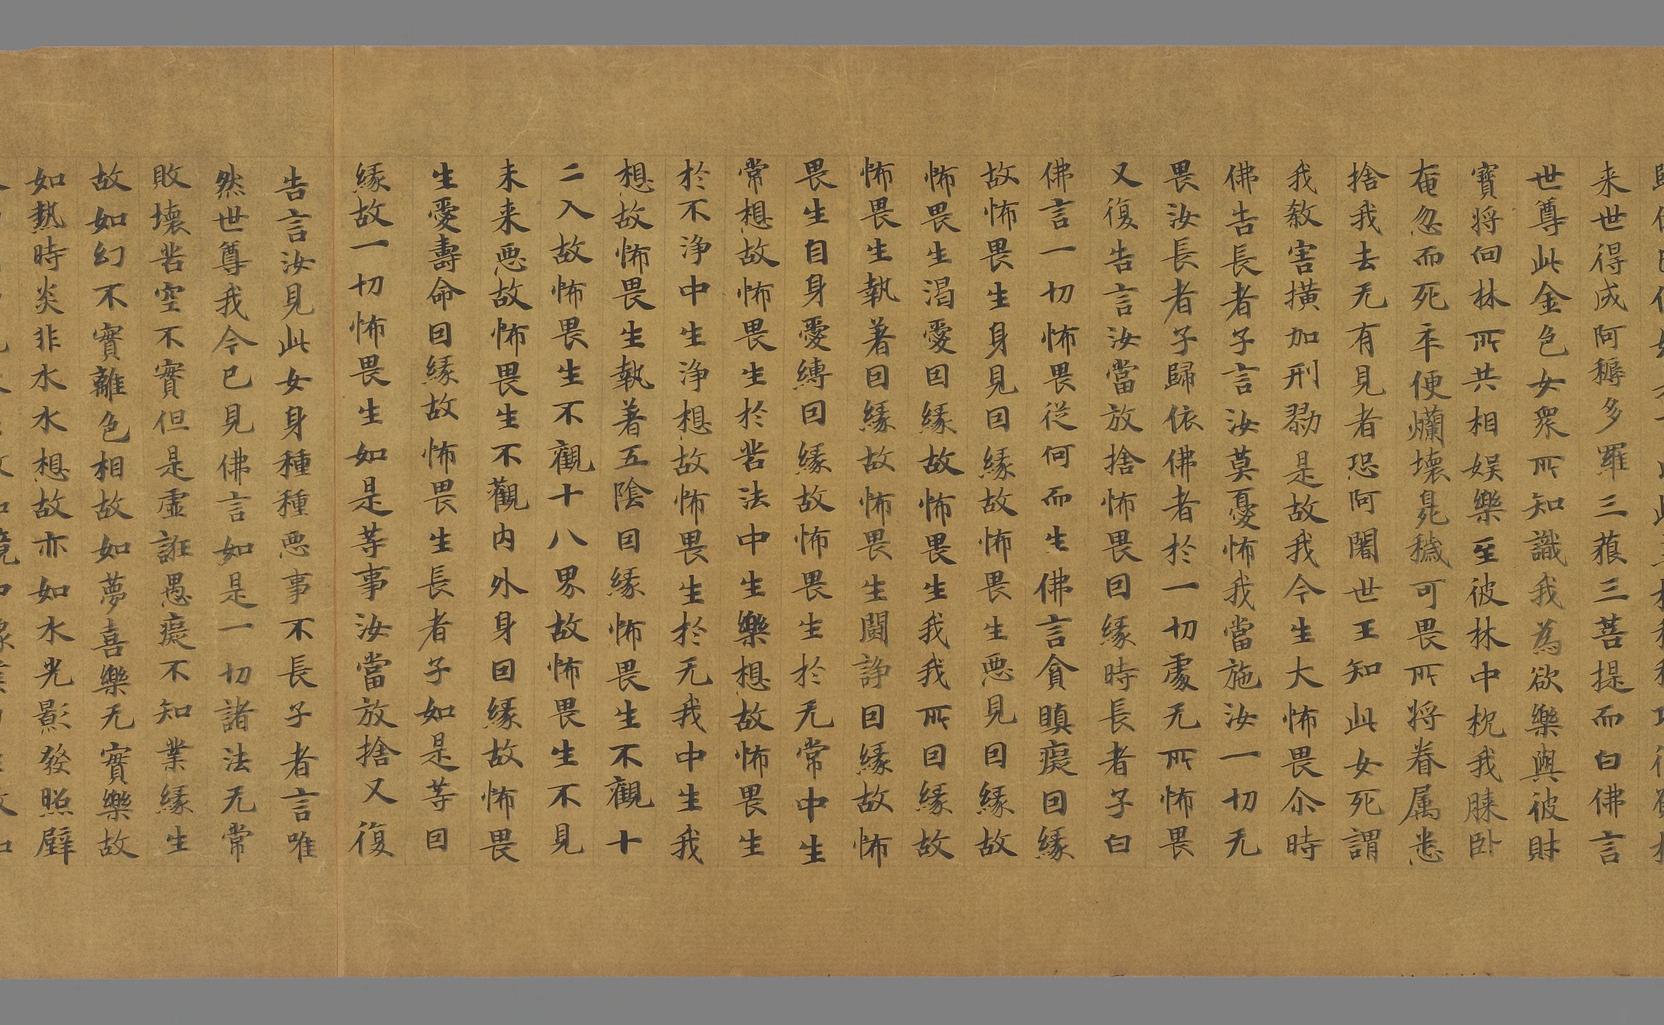 来世得成阿耨多羅三藐三菩提而白佛言
世尊此金色女衆所知識我為欲樂與彼財
寶將向林所共相娛樂至彼林中枕我膝卧
奄忽而死卒便爛壞臰穢可畏所將眷属悉
捨我去无有見者恐阿闍世王知此女死謂
我煞害橫加刑勠是故我今生大怖畏尒時
佛告長者子言汝莫憂怖我當施汝一切无
畏汝長者子歸依佛者於一切處无所怖畏
又復告言汝當放捨怖畏因緣時長者子白
佛言一切怖畏從何而生佛言貪瞋癡因緣
故怖畏生身見因緣故怖畏生惡見因緣故
怖畏生渴愛因緣故怖畏生我我所因緣故
怖畏生執著因緣故怖畏生鬪諍因緣故怖
畏生自身愛縛因緣故怖畏生於无常中生
常想故怖畏生於苦法中生樂想故怖畏生
於不淨中生淨想故怖畏生於无我中生我
想故怖畏生執著五陰因緣怖畏生不觀十
二入故怖畏生不觀十八界故怖畏生不見
未来惡故怖畏生不觀內外身因緣故怖畏
生愛壽命因緣故怖畏生長者子如是等因
緣故一切怖畏生如是等事汝當放捨又復
告言汝見此女身種種惡事不長子者言唯
然世尊我今已見佛言如是一切諸法无常
敗壞苦空不實但是虛誑愚癡不知業緣生
故如幻不實離色相故如夢喜樂无實樂故
如熱時炎非水水想故亦如水光影發照壁